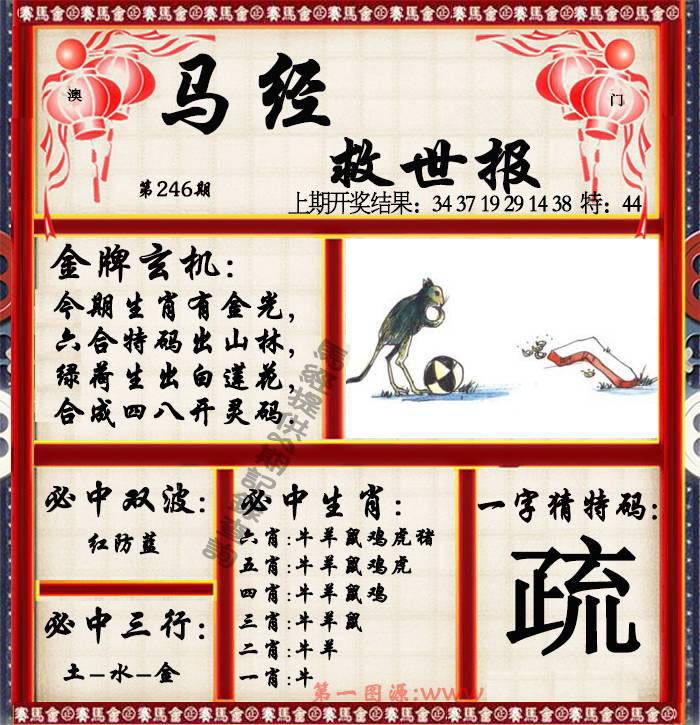 賽馬會 賽馬會 賽馬會 賽馬會 賽馬會 賽馬會 賽馬會 賽馬會
澳
门
马经
救世报
第246期
上期开奖结果：34 37 19 29 14 38 特：44
金牌玄机：
今期生肖有金光，
六合特码出山林，
绿荷生出白莲花，
合成四八开灵码．
必中双波：
红防蓝
必中三行：
土–水–金
必中生肖：
六肖：牛羊鼠鸡虎猪
五肖：牛羊鼠鸡虎
四肖：牛羊鼠鸡
三肖：牛羊鼠
二肖：牛羊
一肖：牛
一字猜特码：
疏
第一图源:www